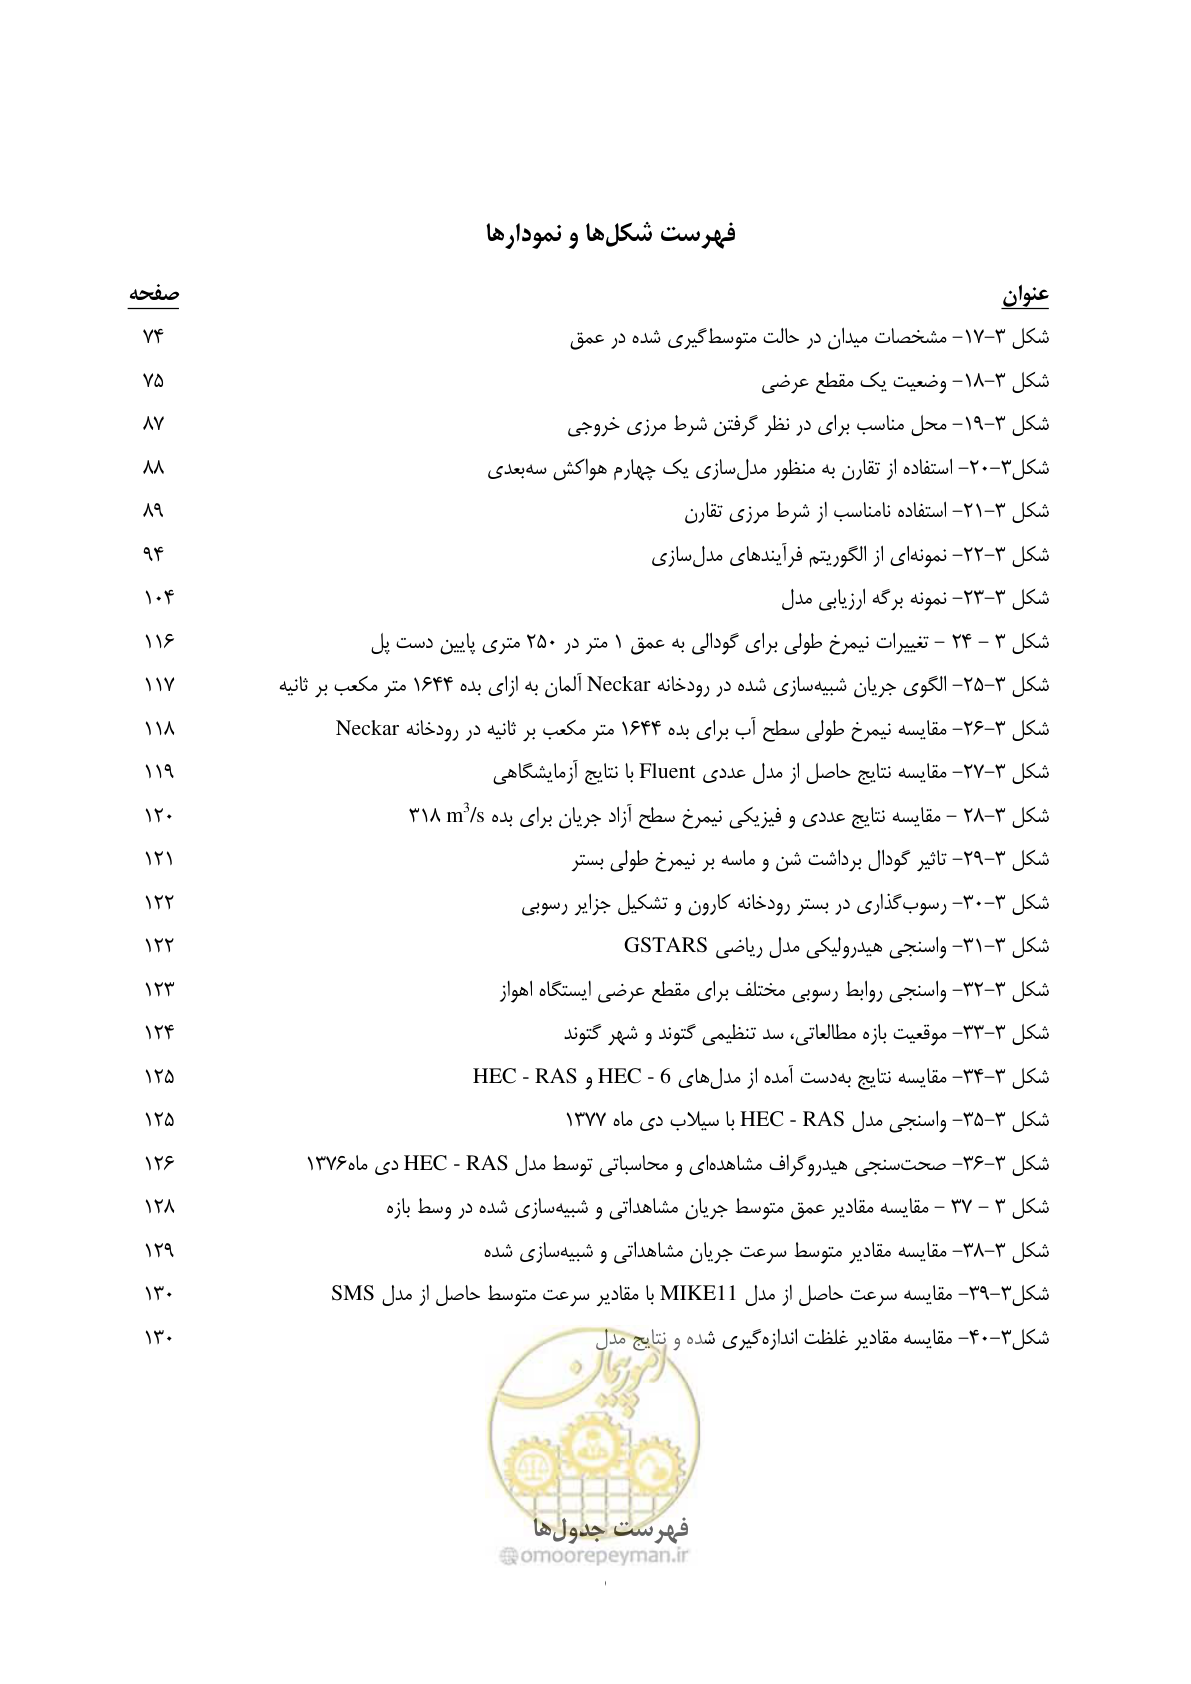 فهرست شکل‌ها و نمودارها
عنوان صفحه
شکل ۳-۱۷- مشخصات میدان در حالت متوسط‌گیری شده در عمق ۷۴
شکل ۳-۱۸- وضعیت یک مقطع عرضی ۷۵
شکل ۳-۱۹- محل مناسب برای در نظر گرفتن شرط مرزی خروجی ۸۷
شکل۳-۲۰- استفاده از تقارن به منظور مدل‌سازی یک چهارم هواکش سه‌بعدی ۸۸
شکل ۳-۲۱- استفاده نامناسب از شرط مرزی تقارن ۸۹
شکل ۳-۲۲- نمونه‌ای از الگوریتم فرآیندهای مدل‌سازی ۹۴
شکل ۳-۲۳- نمونه برگه ارزیابی مدل ۱۰۴
شکل ۳ - ۲۴ - تغییرات نیمرخ طولی برای گودالی به عمق ۱ متر در ۲۵۰ متری پایین دست پل ۱۱۶
شکل ۳-۲۵- الگوی جریان شبیه‌سازی شده در رودخانه Neckar آلمان به ازای بده ۱۶۴۴ متر مکعب بر ثانیه ۱۱۷
شکل ۳-۲۶- مقایسه نیمرخ طولی سطح آب برای بده ۱۶۴۴ متر مکعب بر ثانیه در رودخانه Neckar ۱۱۸
شکل ۳-۲۷- مقایسه نتایج حاصل از مدل عددی Fluent با نتایج آزمایشگاهی ۱۱۹
شکل ۳-۲۸ - مقایسه نتایج عددی و فیزیکی نیمرخ سطح آزاد جریان برای بده ۳۱۸ m³/s ۱۲۰
شکل ۳-۲۹- تاثیر گودال برداشت شن و ماسه بر نیمرخ طولی بستر ۱۲۱
شکل ۳-۳۰- رسوب‌گذاری در بستر رودخانه کارون و تشکیل جزایر رسوبی ۱۲۲
شکل ۳-۳۱- واسنجی هیدرولیکی مدل ریاضی GSTARS ۱۲۲
شکل ۳-۳۲- واسنجی روابط رسوبی مختلف برای مقطع عرضی ایستگاه اهواز ۱۲۳
شکل ۳-۳۳- موقعیت بازه مطالعاتی، سد تنظیمی گتوند و شهر گتوند ۱۲۴
شکل ۳-۳۴- مقایسه نتایج به‌دست آمده از مدل‌های HEC - 6 و HEC - RAS ۱۲۵
شکل ۳-۳۵- واسنجی مدل HEC - RAS با سیلاب دی ماه ۱۳۷۷ ۱۲۵
شکل ۳-۳۶- صحت‌سنجی هیدروگراف مشاهده‌ای و محاسباتی توسط مدل HEC - RAS دی ماه۱۳۷۶ ۱۲۶
شکل ۳ - ۳۷ - مقایسه مقادیر عمق متوسط جریان مشاهداتی و شبیه‌سازی شده در وسط بازه ۱۲۸
شکل ۳-۳۸- مقایسه مقادیر متوسط سرعت جریان مشاهداتی و شبیه‌سازی شده ۱۲۹
شکل۳-۳۹- مقایسه سرعت حاصل از مدل MIKE11 با مقادیر سرعت متوسط حاصل از مدل SMS ۱۳۰
شکل۳-۴۰- مقایسه مقادیر غلظت اندازه‌گیری شده و نتایج مدل ۱۳۰
امور پیمان
فهرست جدول‌ها
@omoorepeyman.ir